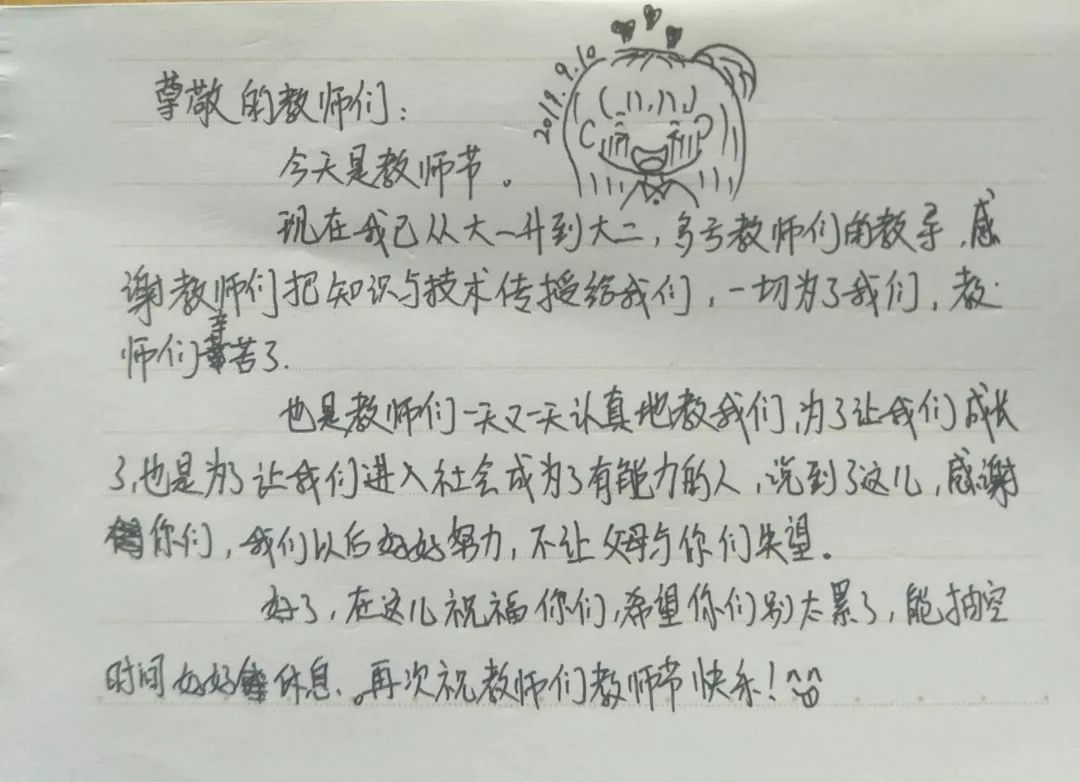 2019.9.10
尊敬的教师们：
今天是教师节。
现在我已从大一升到大二，多亏教师们的教导，感
谢教师们把知识与技术传授给我们，一切为了我们，教
师们辛苦了.
也是教师们一天又一天认真地教我们，为了让我们成长
了，也是为了让我们进入社会成为了有能力的人，说到了这儿，感谢
你们，我们以后好好努力，不让父母与你们失望。
好了，在这儿祝福你们，希望你们别太累了，能抽空
时间好好休息、。再次祝教师们教师节快乐！